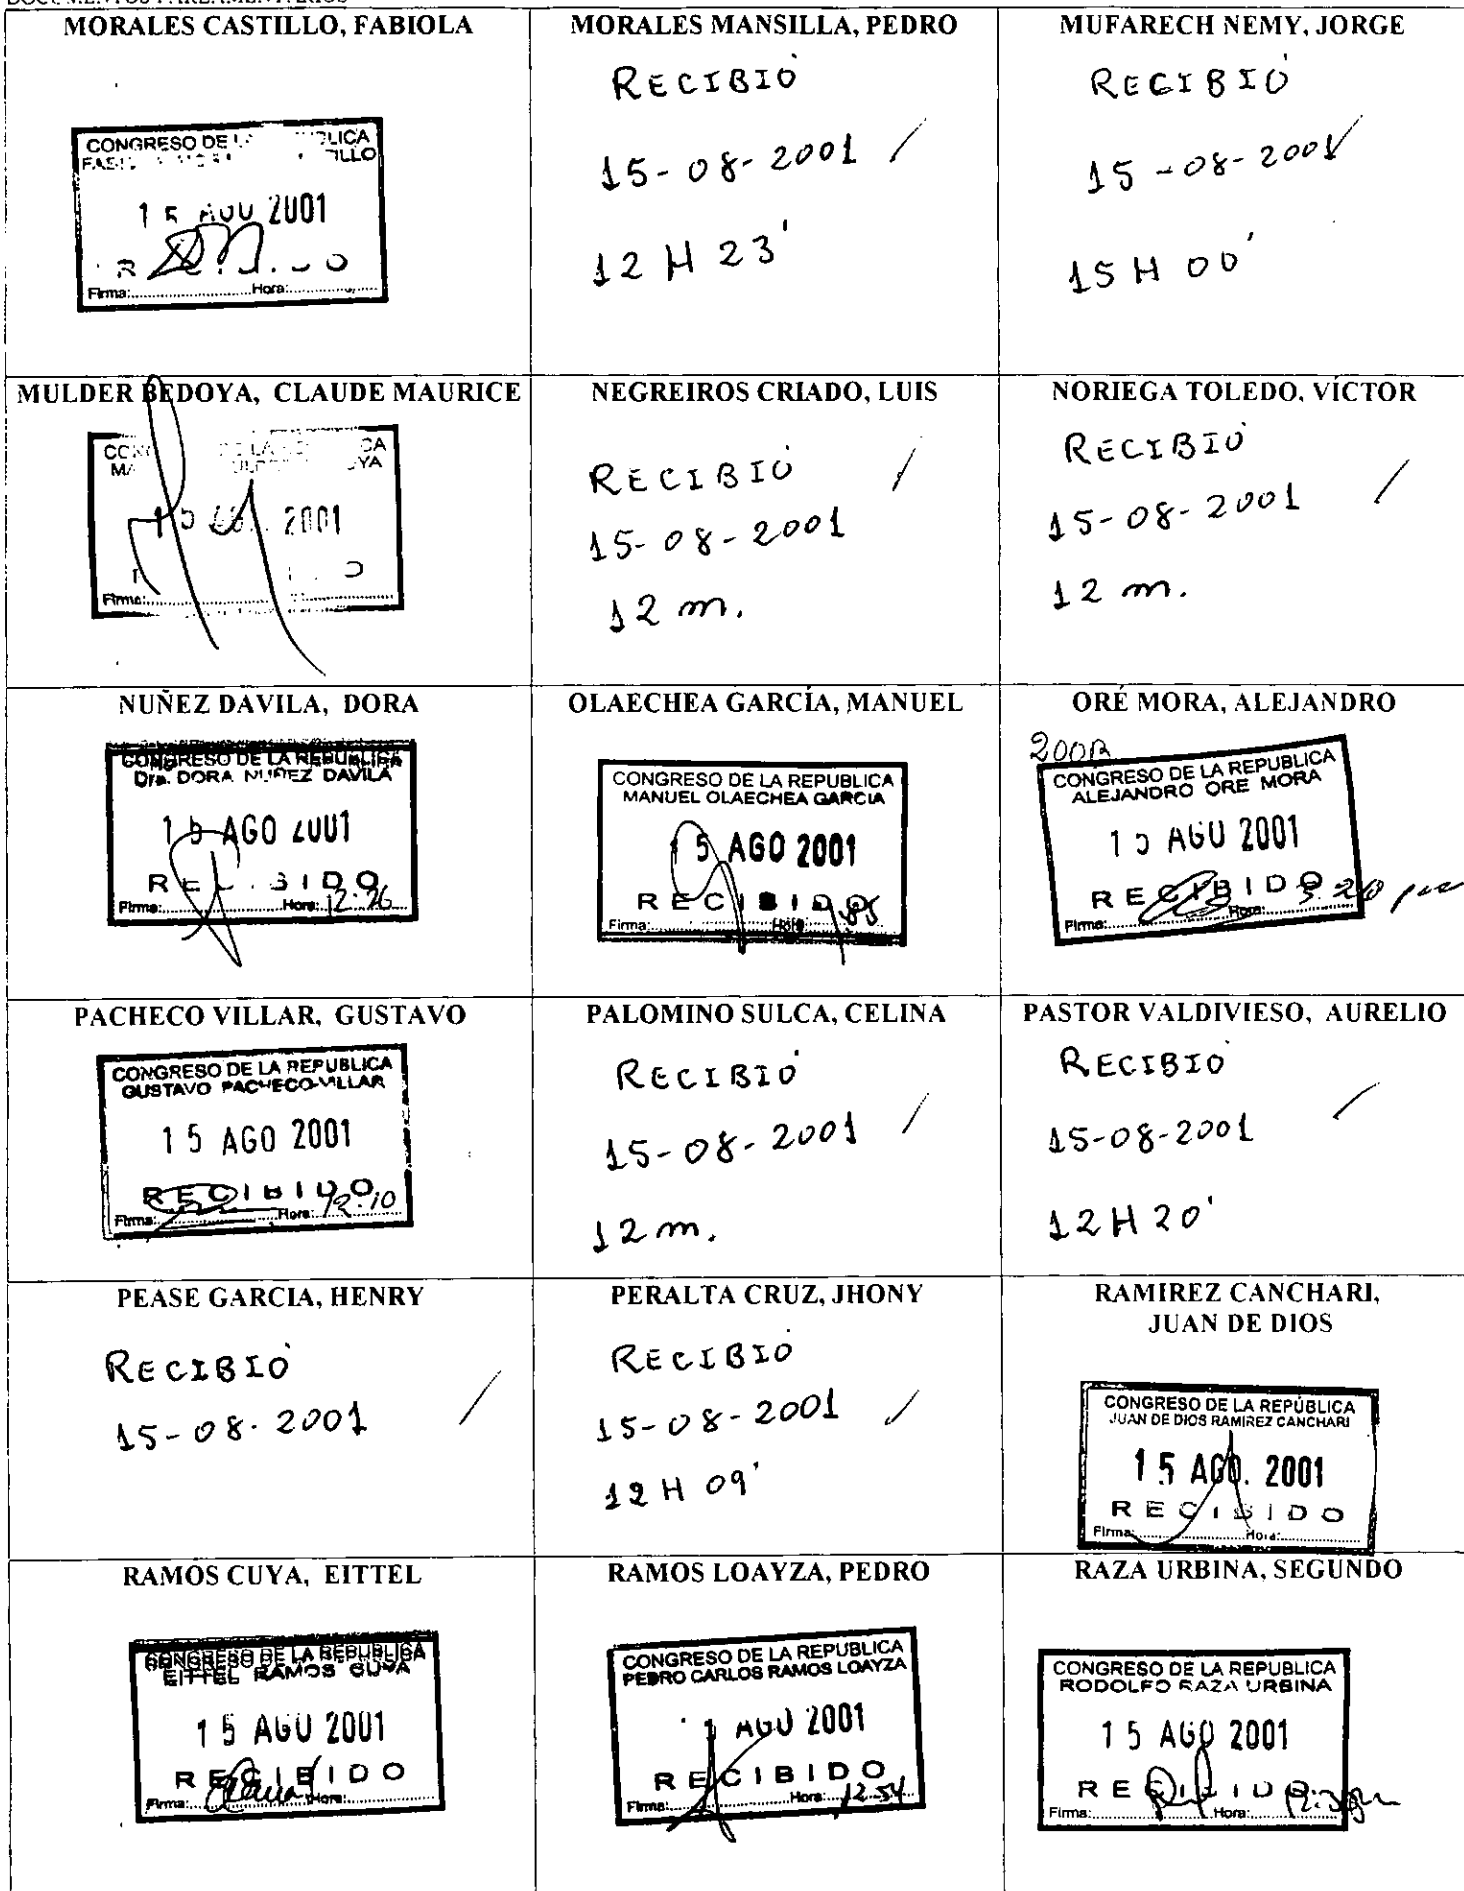 DOCUMENTOS PARLAMENTARIOS
MORALES CASTILLO, FABIOLA
CONGRESO DE
15 AGO 2001
Firma: Hora:
MORALES MANSILLA, PEDRO
RECIBIÓ
15-08-2001
12 H 23'
MUFARECH NEMY, JORGE
RECIBIÓ
15-08-2001
15 H 00'
MULDER BEDOYA, CLAUDE MAURICE
DE LA
15 2001
Firma:
NEGREIROS CRIADO, LUIS
RECIBIÓ
15-08-2001
12 m.
NORIEGA TOLEDO, VÍCTOR
RECIBIÓ
15-08-2001
12 m.
NUÑEZ DAVILA, DORA
CONGRESO DE LA REPUBLICA
Dra. DORA NUÑEZ DAVILA
15 AGO 2001
RECIBIDO
Firma: Hora: 12:26
OLAECHEA GARCÍA, MANUEL
CONGRESO DE LA REPUBLICA
MANUEL OLAECHEA GARCIA
15 AGO 2001
RECIBIDO
Firma: Hora
ORÉ MORA, ALEJANDRO
CONGRESO DE LA REPUBLICA
ALEJANDRO ORE MORA
15 AGO 2001
RECIBIDO
Firma: Hora:
PACHECO VILLAR, GUSTAVO
CONGRESO DE LA REPUBLICA
GUSTAVO PACHECO VILLAR
15 AGO 2001
RECIBIDO
Firma: Hora: 12:10
PALOMINO SULCA, CELINA
RECIBIÓ
15-08-2001
12 m.
PASTOR VALDIVIESO, AURELIO
RECIBIÓ
15-08-2001
12 H 20'
PEASE GARCIA, HENRY
RECIBIÓ
15-08-2001
PERALTA CRUZ, JHONY
RECIBIÓ
15-08-2001
12 H 09'
RAMIREZ CANCHARI,
JUAN DE DIOS
CONGRESO DE LA REPÚBLICA
JUAN DE DIOS RAMIREZ CANCHARI
15 AGO. 2001
RECIBIDO
Firma: Hora:
RAMOS CUYA, EITTEL
CONGRESO DE LA REPUBLICA
EITTEL RAMOS CUYA
15 AGO 2001
RECIBIDO
Firma: Hora:
RAMOS LOAYZA, PEDRO
CONGRESO DE LA REPUBLICA
PEDRO CARLOS RAMOS LOAYZA
AGO 2001
RECIBIDO
Firma: Hora: 12:54
RAZA URBINA, SEGUNDO
CONGRESO DE LA REPUBLICA
RODOLFO RAZA URBINA
15 AGO 2001
RECIBIDO
Firma: Hora: